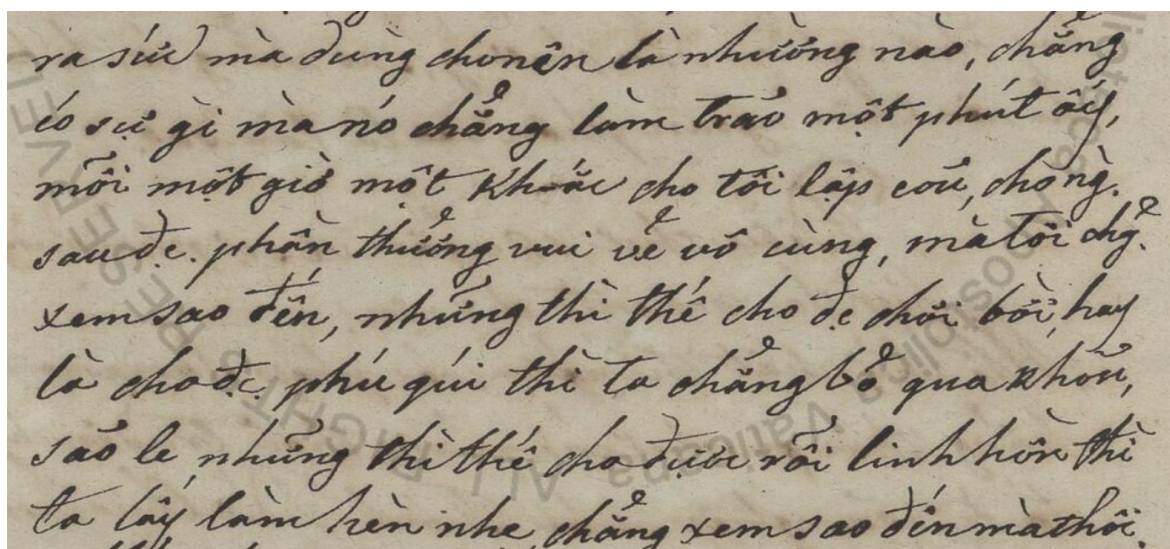 ra sức mà dùng cho nên là nhường nào, chẳng
có sự gì mà nó chẳng làm trao một phút ấy,
mỗi một giờ một khắc cho tôi lập cou, chòng.
sau đc. phần thưởng vui vẻ vô cùng, mà tôi chg̉.
xem sao đến, nhưng thì thế cho đc chơi bời, hay
là cho đc. phú qúi thì ta chẳng bỏ qua khôũ,
sao le nhưng thì thế cho được rỗi linh hồn thì
ta lấy làm hèn nhẹ, chẳng xem sao đến mà thôi.
VED RESERVED ALL RIGHT Vaticana Apostolica